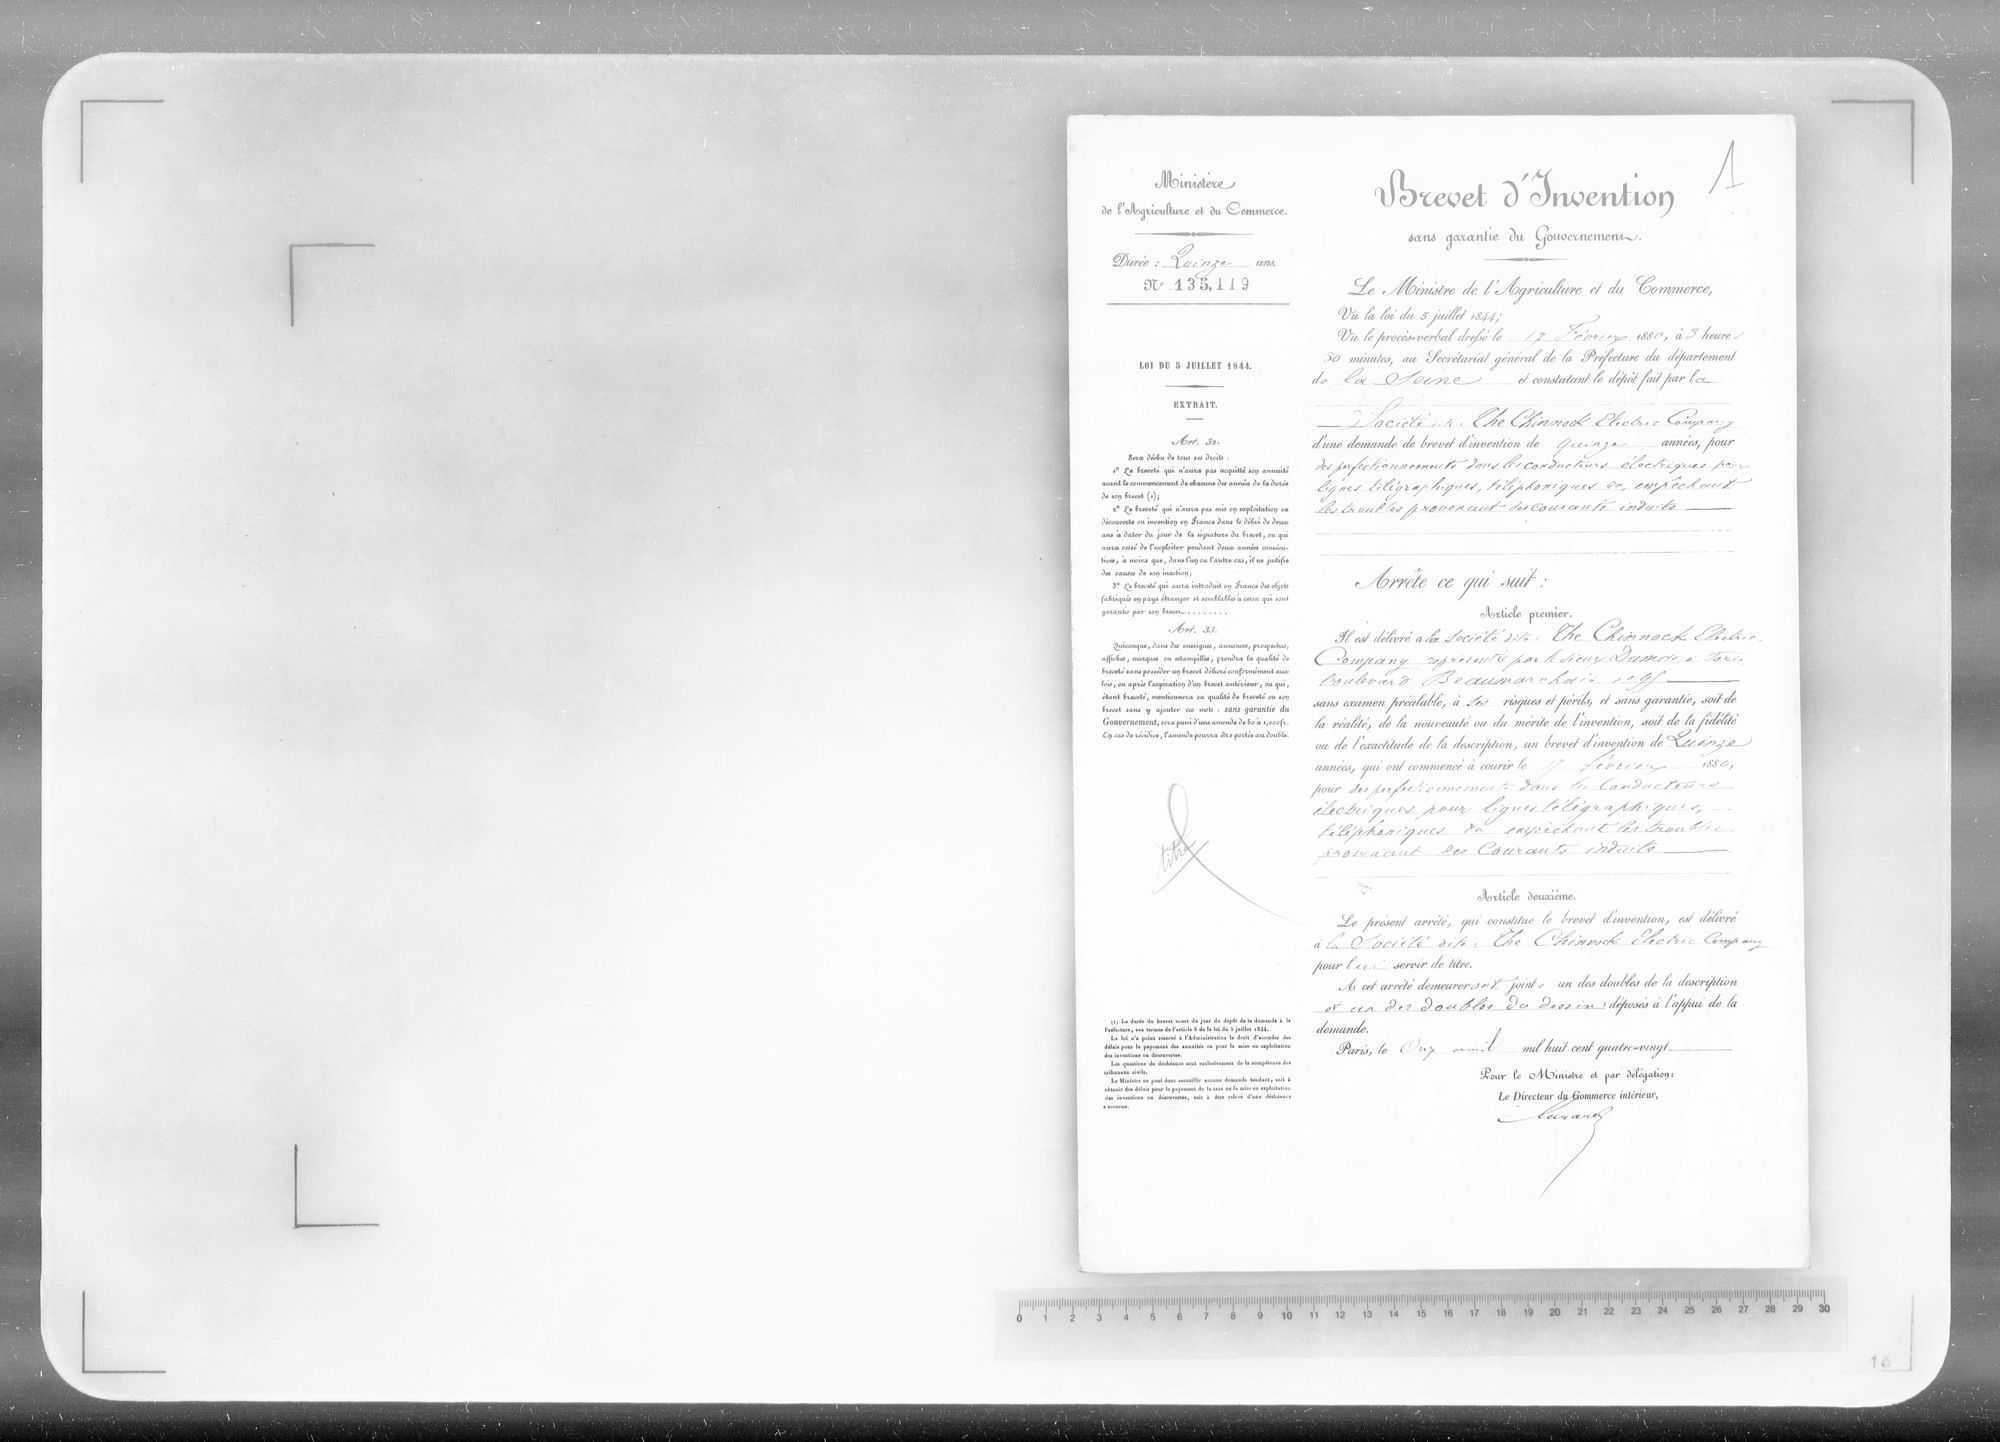 Ministère
de l'Agriculture et du Commerce.
Durée : Quinze ans.
N° 135,119
LOI DU 5 JUILLET 1844.
EXTRAIT.
Art. 32.
Sera déchu de tous ses droits :
1° Le breveté qui n'aura pas acquitté son annuité
avant le commencement de chacune des années de la durée
de son brevet (1);
2° Le breveté qui n'aura pas mis en exploitation sa
découverte ou invention en France dans le délai de deux
ans à dater du jour de la signature du brevet, ou qui
aura cessé de l'exploiter pendant deux années consécu-
tives, à moins que, dans l'un ou l'autre cas, il ne justifie
des causes de son inaction;
3° Le breveté qui aura introduit en France des objets
fabriqués en pays étranger et semblables à ceux qui sont
garantis par son brevet........
Art. 33.
Quiconque, dans des enseignes, annonces, prospectus,
affiches, marques ou estampilles, prendra la qualité de
breveté sans posséder un brevet délivré conformément aux
lois, ou après l'expiration d'un brevet antérieur, ou qui,
étant breveté, mentionnera sa qualité de breveté ou son
brevet sans y ajouter ces mots : sans garantie du
Gouvernement, sera puni d'une amende de 50 à 1,000 fr.
En cas de récidive, l'amende pourra être portée au double.
titre
(1) La durée du brevet court du jour du dépôt de la demande à la
Préfecture, aux termes de l'article 8 de la loi du 5 juillet 1844.
La loi n'a point réservé à l'Administration le droit d'accorder des
délais pour le payement des annuités ou pour la mise en exploitation
des inventions ou découvertes.
Les questions de déchéance sont exclusivement de la compétence des
tribunaux civils.
Le Ministre ne peut donc accueillir aucune demande tendant, soit à
obtenir des délais pour le payement de la taxe ou la mise en exploitation
des inventions ou découvertes, soit à être relevé d'une déchéance
encourue.
1
Brevet d'Invention
sans garantie du Gouvernement.
Le Ministre de l'Agriculture et du Commerce,
Vu la loi du 5 juillet 1844;
Vu le procès-verbal dressé le 17 Février 1880, à 3 heures
30 minutes, au Secrétariat général de la Préfecture du département
de la Seine et constatant le dépôt fait par la
Société dite: The Chinnock Electric Company
d'une demande de brevet d'invention de quinze années, pour
des perfectionnements dans les conducteurs électriques pour
lignes télégraphiques, téléphoniques &a, empêchant
les troubles provenant des courants induits
Arrête ce qui suit :
Article premier.
Il est délivré à la Société dite: The Chinnock Electric
Company représentée par le sieur Damos, à Paris,
boulevard Beaumarchais n° 95
sans examen préalable, à ses risques et périls, et sans garantie, soit de
la réalité, de la nouveauté ou du mérite de l'invention, soit de la fidélité
ou de l'exactitude de la description, un brevet d'invention de Quinze
années, qui ont commencé à courir le 17 février 1880,
pour des perfectionnements dans les Conducteurs
électriques pour lignes télégraphiques,
téléphoniques &a empêchant les troubles
provenant des Courants induits
Article deuxième.
Le présent arrêté, qui constitue le brevet d'invention, est délivré
à la Société dite: The Chinnock Electric Company
pour lui servir de titre.
A cet arrêté demeureront joints un des doubles de la description
et un des doubles du dessin déposés à l'appui de la
demande.
Paris, le Onze avril mil huit cent quatre-vingt
Pour le Ministre et par délégation:
Le Directeur du Commerce intérieur,
0 1 2 3 4 5 6 7 8 9 10 11 12 13 14 15 16 17 18 19 20 21 22 23 24 25 26 27 28 29 30
16